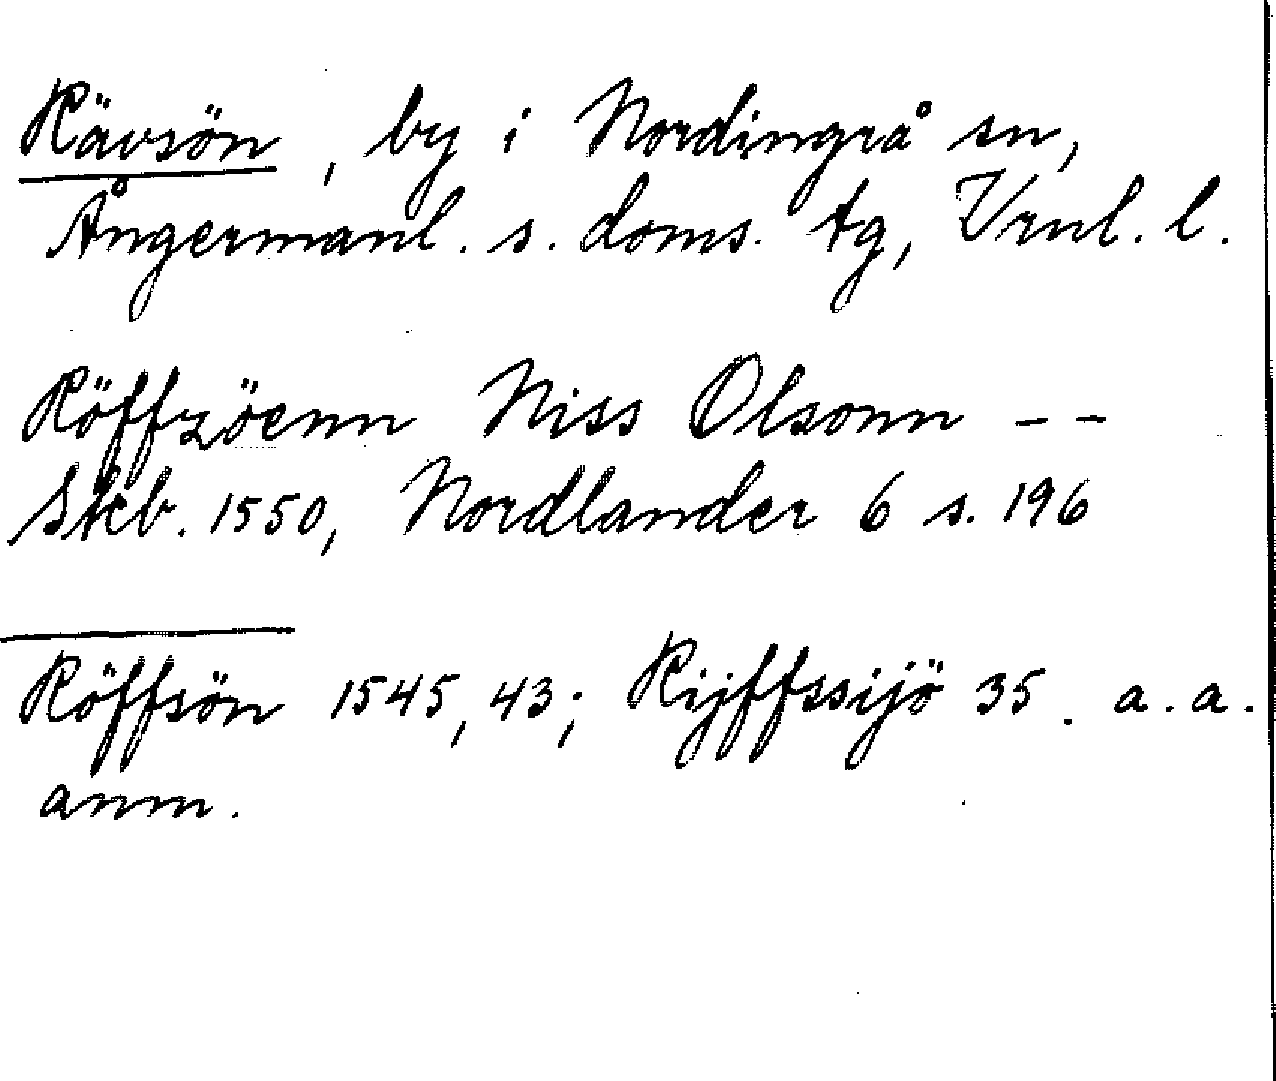 Rävsön, by i Nordingrå sn,
Ångermanl. s. doms. tg, Vrnl. l.
Röffzöenn Niss Olsonn - -
Skb. 1550, Nordlander 6 s. 196
Röffsön 1545, 43; Rijffssijö 35. a. a.
anm.